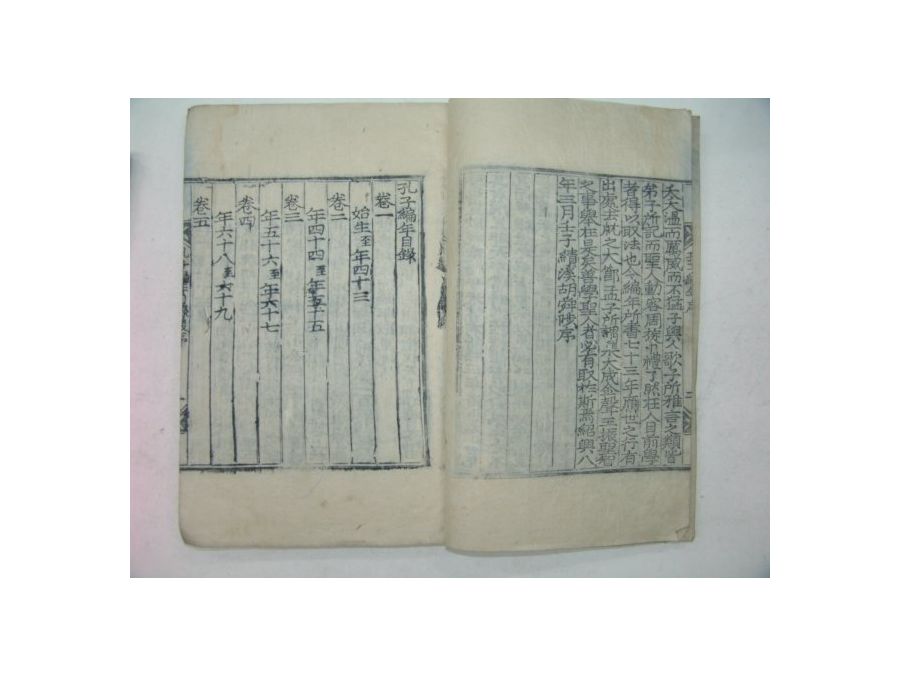 大夫溫而厲威而不猛子與人歌子所雅言之類皆
弟子所記而聖人動容周旋中禮了然在人目前學
者得以取法也今編年所書七十三年厲世之行有
出處去就之大節孟子所謂集大成金聲玉振聖智
之事舉在是矣尊學聖人者必有取於斯焉紹興八
年三月壬子績溪胡舜陟序
孔子編年目錄
卷一
始生至年四十三
卷二
年四十四至年五十五
卷三
年五十六至年六十七
卷四
年六十八至六十九
卷五